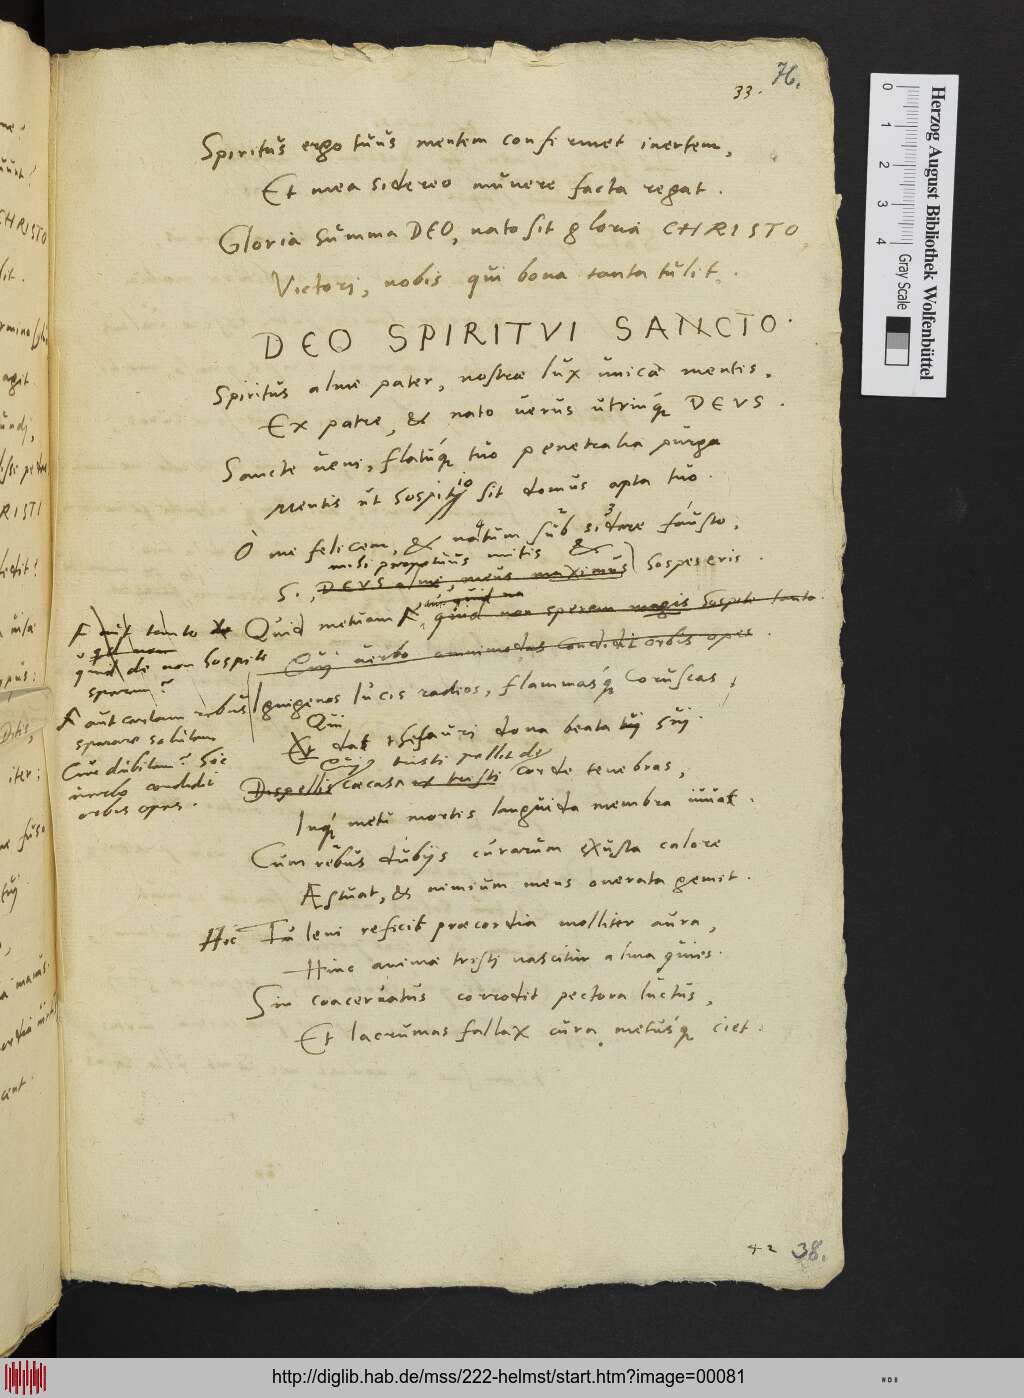 33. 76.
Spiritus ergo tuus mentem confirmet inertem,
Et mea sidereo munere facta regat.
Gloria summa DEO, nato sit gloria CHRISTO,
Victori, nobis qui bona tanta tulit.
DEO SPIRITVI SANCTO.
Spiritus alme pater, nostrae lux unica mentis,
Ex patre, & nato verus utrinq; DEVS.
Sancte veni, flatuq; tuo penetralia purga
Mentis ut hospitio sit domus apta tuo.
O me felicem, & natum sub sidere fausto,
4 2 3
mihi propitius mitis &
Si, DEVS alme, meus maximus sospes eris.
Quid metuam quid non sperem magis sospite tanto
Cuj verbo omnimodas condidit orbis opes.
Ignigenos lucis radios, flammasq; coruscas,
Qui
Et dat thesauri dona beata suj.
tristi pallid
Dispellis caecasq et tristi corde tenebras,
Inq; metu mortis languida membra iuuat.
Cum rebus dubijs curarum exusta calore
AEstuat, & nimium mens onerata gemit.
Hic Tu leni reficit praecordia molliter aura,
Hinc animae tristi nascitur alma quies.
Sin coaceruatus corrodit pectora luctus,
Et lacrumas fallax cura metusq; ciet.
aut tanto
quid non
quid de non sospite
sperem?
aut cantam rebus
sperare salutem
Cur dubitem? hic
verbo condidit
orbis opes.
42 38.
Herzog August Bibliothek Wolfenbüttel
0 1 2 3 4
Gray Scale
http://diglib.hab.de/mss/222-helmst/start.htm?image=00081